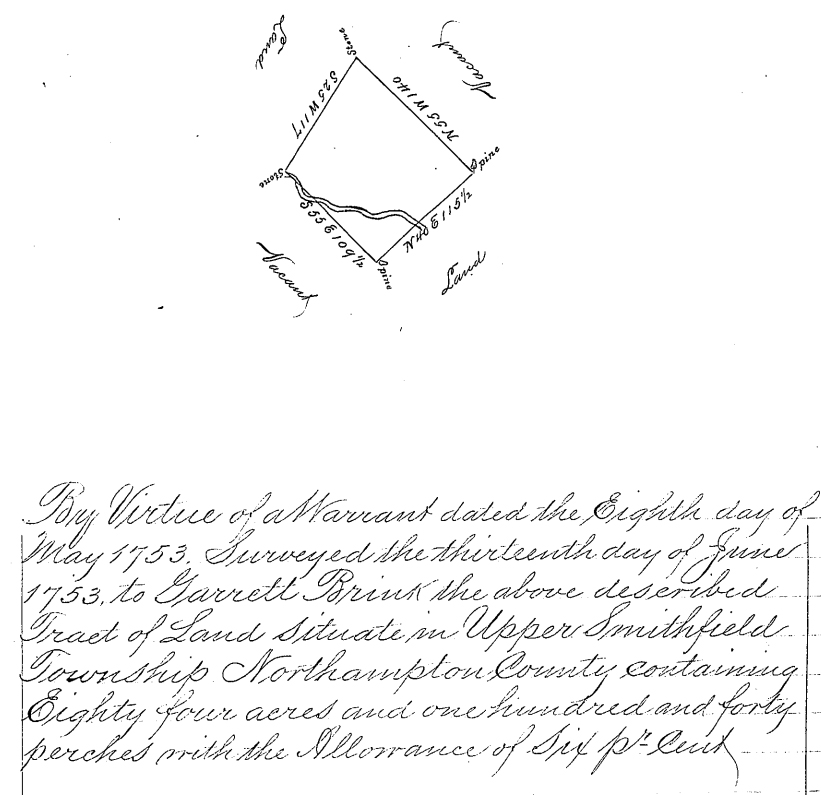 Land
Stone
Vacant
S 25 W 117
N 55 W 140
Stone
Spine
S 55 E 109 1/2
N 40 E 115 1/2
Vacant
Spine
Land
By Virtue of a Warrant dated the Eighth day of
May 1753. Surveyed the thirteenth day of June
1753, to Garrett Brink the above described
Tract of Land Situate in Upper Smithfield
Township Northampton County containing
Eighty four acres and one hundred and forty
perches with the Allowance of Six pr Cent